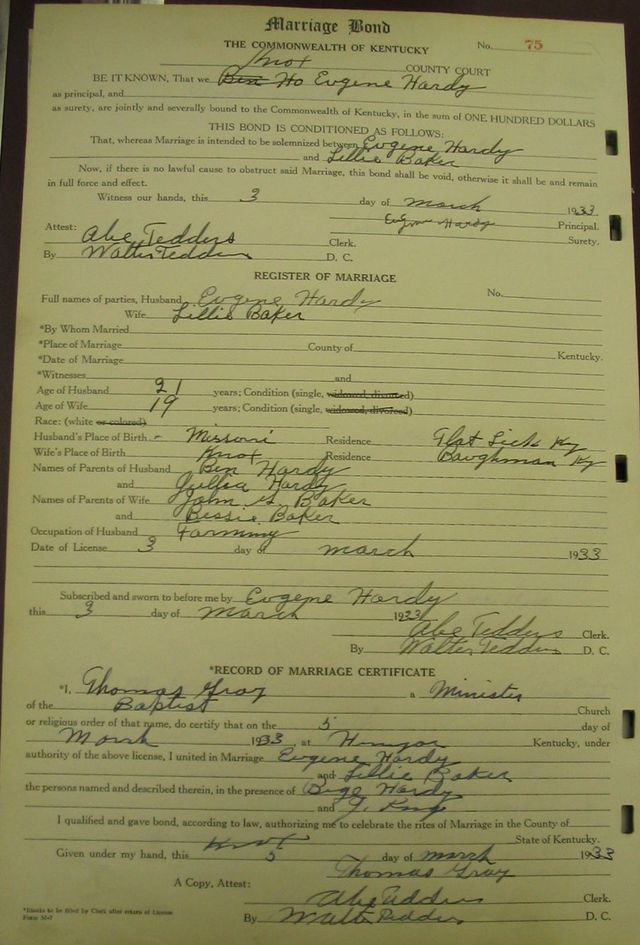 Marriage Bond
THE COMMONWEALTH OF KENTUCKY No. 75
Knox COUNTY COURT
BE IT KNOWN, That we Ben Ho Eugene Hardy
as principal, and
as surety, are jointly and severally bound to the Commonwealth of Kentucky, in the sum of ONE HUNDRED DOLLARS
THIS BOND IS CONDITIONED AS FOLLOWS:
That, whereas Marriage is intended to be solemnized between Eugene Hardy
and Lillie Baker
Now, if there is no lawful cause to obstruct said Marriage, this bond shall be void, otherwise it shall be and remain
in full force and effect.
Witness our hands, this 3 day of March 1933
Eugene Hardy Principal.
Attest: Abe Tedders Clerk. Surety.
By Walter Tedders D. C.
REGISTER OF MARRIAGE
Full names of parties, Husband Eugene Hardy No.
Wife Lillie Baker
*By Whom Married
*Place of Marriage County of Kentucky.
*Date of Marriage
*Witnesses and
Age of Husband 21 years; Condition (single, widowed, divorced)
Age of Wife 19 years; Condition (single, widowed, divorced)
Race: (white or colored)
Husband's Place of Birth - Missouri Residence Flat Lick Ky
Wife's Place of Birth Knox Residence Baughman Ky
Names of Parents of Husband Ben Hardy
and Jullia Hardy
Names of Parents of Wife John G. Baker
and Bessie Baker
Occupation of Husband Farming
Date of License 3 day of March 1933
Subscribed and sworn to before me by Eugene Hardy
this 3 day of March 1933
Abe Tedders Clerk.
By Walter Tedders D. C.
*RECORD OF MARRIAGE CERTIFICATE
*I, Thomas Gray a Minister
of the Baptist Church
or religious order of that name, do certify that on the 5 day of
March 1933, at Kentucky, under
authority of the above license, I united in Marriage Eugene Hardy
and Lillie Baker
the persons named and described therein, in the presence of Hardy
and
I qualified and gave bond, according to law, authorizing me to celebrate the rites of Marriage in the County of
Knox State of Kentucky.
Given under my hand, this 5 day of March 1933
Thomas Gray
A Copy, Attest:
Abe Tedders Clerk.
By Walter Tedders D. C.
*Blanks to be filled by Clerk after return of License